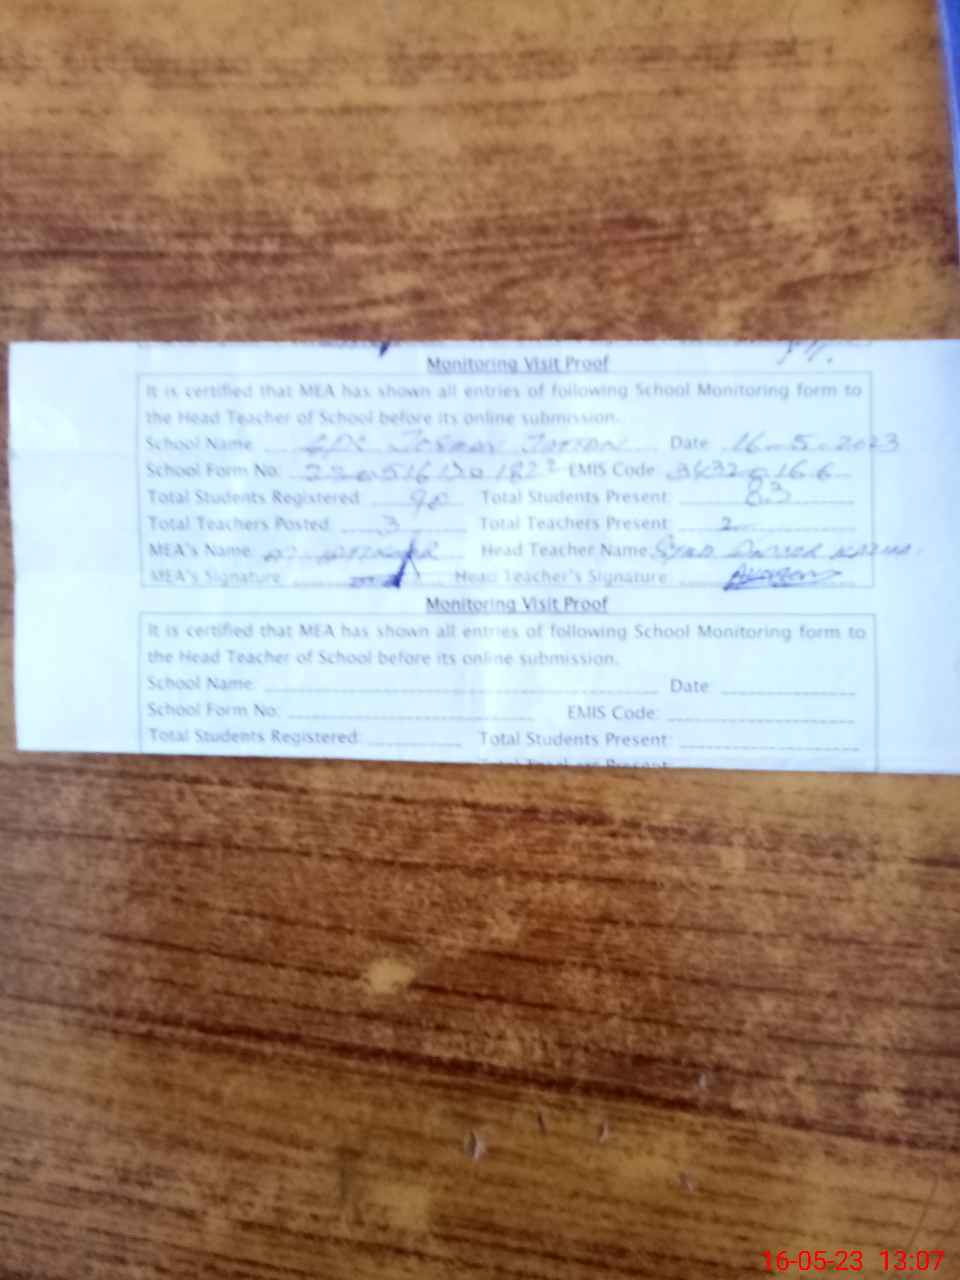 Monitoring Visit Proof
It is certified that MEA has shown all entries of following School Monitoring form to
the Head Teacher of School before its online submission.
School Name Date 16-5-2023
School Form No: EMIS Code
Total Students Registered 90 Total Students Present 83
Total Teachers Posted 3 Total Teachers Present 2
MEA's Name Head Teacher Name
MEA's Signature Head Teacher's Signature
Monitoring Visit Proof
It is certified that MEA has shown all entries of following School Monitoring form to
the Head Teacher of School before its online submission.
School Name: Date
School Form No: EMIS Code:
Total Students Registered: Total Students Present:
Total Teachers Present:
16-05-23 13:07